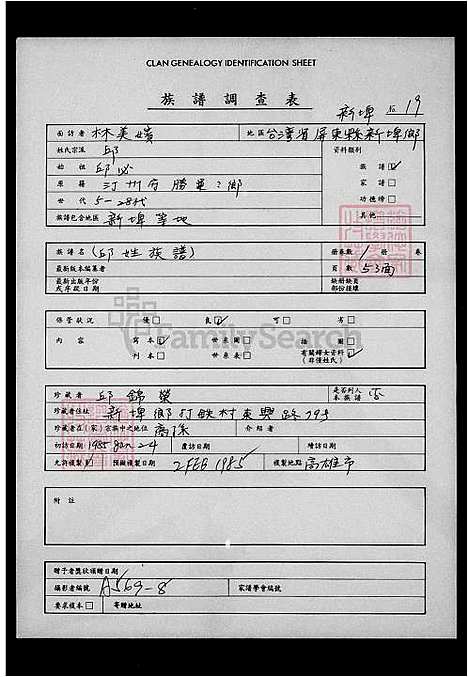 CLAN GENEALOGY IDENTIFICATION SHEET
族譜調查表
新埤 No. 19
面訪者 林美嬪 地區 台灣省屏東縣新埤鄉
姓氏宗派 邱 資料類別
始祖 邱必 族譜 ✓
原籍 汀州府勝運?鄉 家譜
世代 5-28代 功德榜
族譜包含地區 新埤等地 其他
族譜名 (邱姓族譜) 冊卷數 1 冊 卷
最新版本編纂者 頁數 53面
最新出版年份 缺冊缺頁
或序跋日期 部份標填
保管狀況 優 良 ✓ 可 劣
內容 寫本 ✓ 世系圖 插圖
刊本 世系表 有關婦女資料 ✓
(非僅姓氏)
FamilySearch
珍藏者 邱錦榮 是否列入本族譜 否
珍藏者住址 新埤鄉打鉄村東興路79號
珍藏者在(家)宗族中之地位 裔孫 介紹者
初訪日期 1985 Jan 24 覆訪日期 續訪日期
允許複製 預擬複製日期 2 FEB 1985 複製地點 高雄市
附註
贈予者獎狀頒贈日期
攝影者編號 A569-8 家譜學會編號
要求複本 寄贈地址